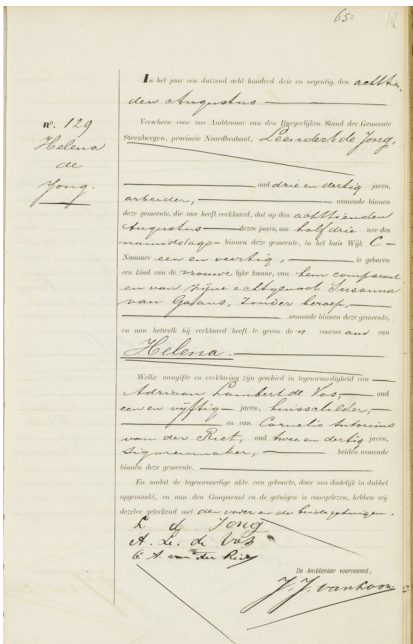 65
In het jaar een duizend acht honderd drie en negentig, den achttienden Augustus
Verscheen voor ons Ambtenaar van den Burgerlijken Stand der Gemeente
Steenbergen, provincie Noordbrabant, Leendert de Jong,
nº. 129
Helena
de
Jong.
oud drie en dertig jaren,
arbeider, wonende binnen
deze gemeente, die ons heeft verklaard, dat op den achttienden
Augustus dezes jaars, om half drie ure des
namiddags binnen deze gemeente, in het huis Wijk C
Nommer een en veertig, is geboren
een kind van de vrouwelijke kunne, van hem comparant
en van zijne echtgenoot Susanna
van, zonder beroep,
wonende binnen deze gemeente,
en aan hetwelk hij verklaard heeft te geven den voornaam van
Helena.
Welke aangifte en verklaring zijn geschied in tegenwoordigheid van
Adriaan Lambert de Vos, oud
een en vijftig jaren, huisschilder,
en van Cornelis Antonius
van der Riet, oud twee en dertig jaren,
sigarenmaker, beiden wonende
binnen deze gemeente.
En omdat de tegenwoordige akte van geboorte, door ons dadelijk in dubbel
opgemaakt, en aan den Comparant en de getuigen is voorgelezen, hebben wij
dezelve geteekend met den vader en de beide getuigen.
L de Jong
A. L. de Vos
C A van der Riet
De Ambtenaar voornoemd,